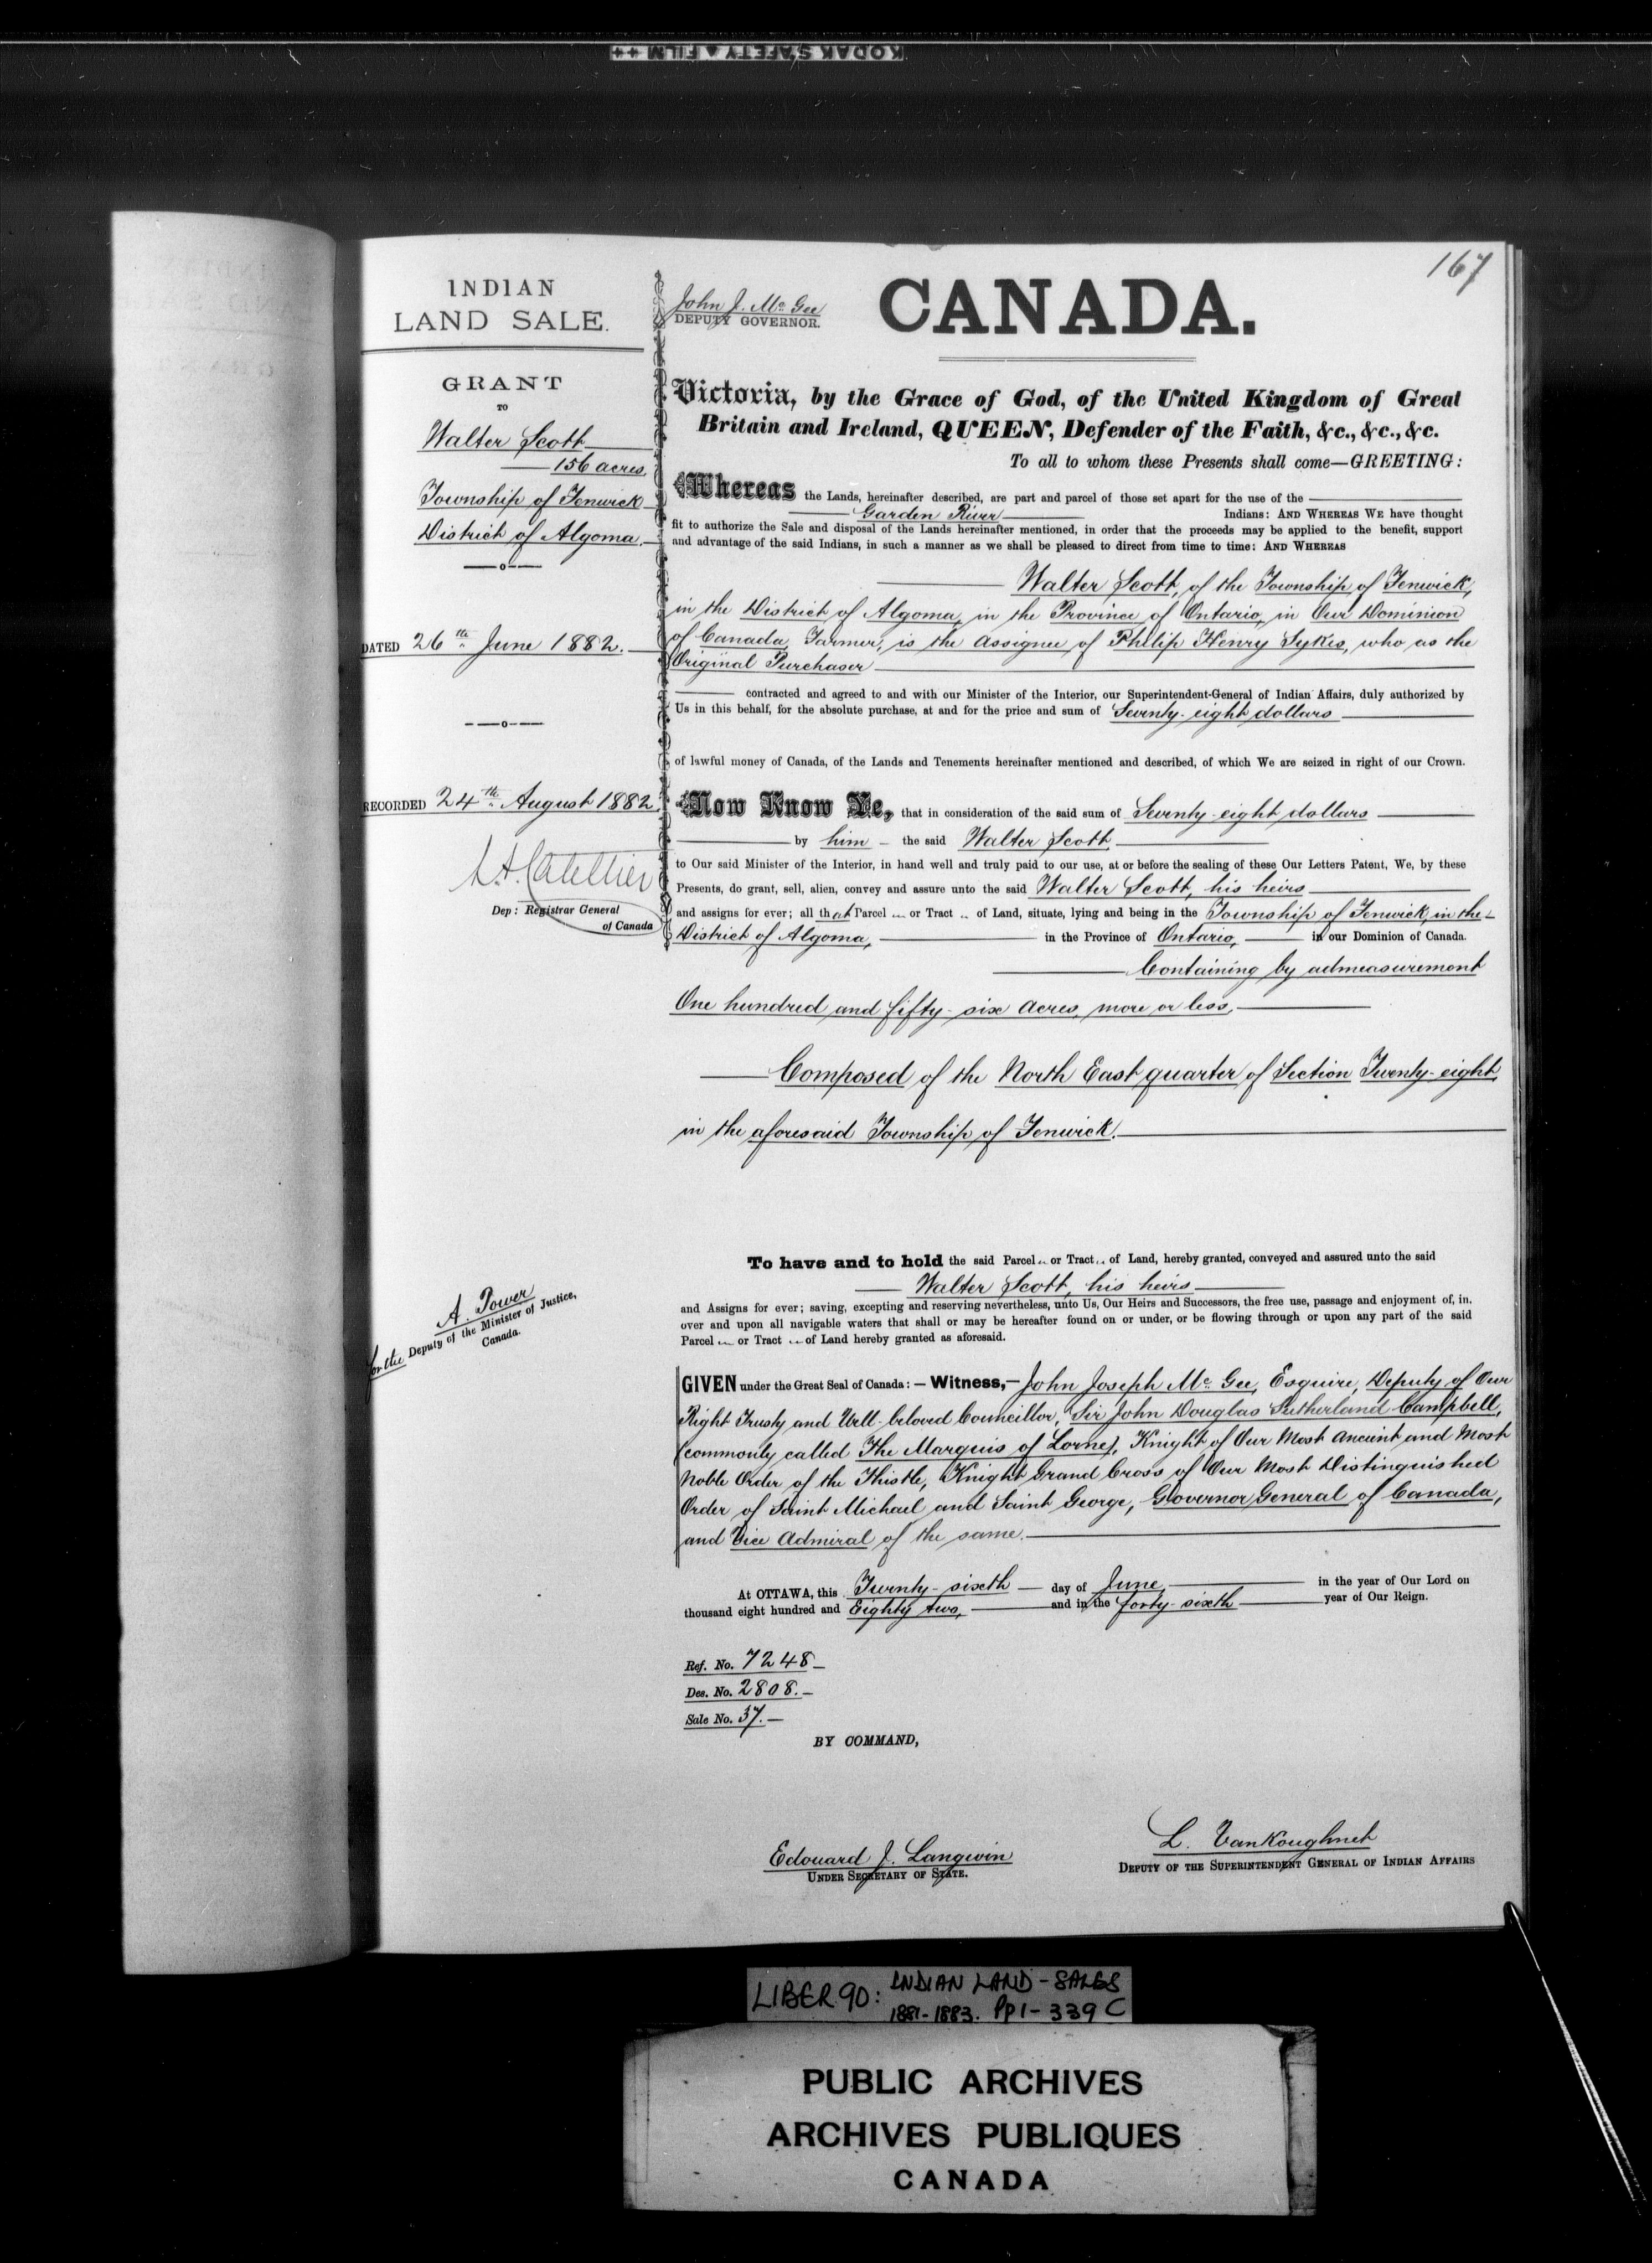 KODAK SAFETY FILM ++
167
INDIAN
LAND SALE.
GRANT
TO
Walter Scott
156 acres,
Township of Fenwick
District of Algoma.
DATED 26th June 1882.
RECORDED 24th August 1882.
L.A. Catellier
Dep: Registrar General
of Canada
A. Power
for the Deputy of the Minister of Justice,
Canada.
John J. McGee
DEPUTY GOVERNOR.
CANADA.
Victoria, by the Grace of God, of the United Kingdom of Great
Britain and Ireland, QUEEN, Defender of the Faith, &c., &c., &c.
To all to whom these Presents shall come—GREETING:
Whereas the Lands, hereinafter described, are part and parcel of those set apart for the use of the
Garden River Indians: AND WHEREAS WE have thought
fit to authorize the Sale and disposal of the Lands hereinafter mentioned, in order that the proceeds may be applied to the benefit, support
and advantage of the said Indians, in such a manner as we shall be pleased to direct from time to time: AND WHEREAS
Walter Scott, of the Township of Fenwick,
in the District of Algoma, in the Province of Ontario, in Our Dominion
of Canada, Farmer, is the assignee of Philip Henry Sykes, who as the
Original Purchaser
contracted and agreed to and with our Minister of the Interior, our Superintendent-General of Indian Affairs, duly authorized by
Us in this behalf, for the absolute purchase, at and for the price and sum of Seventy-eight dollars
of lawful money of Canada, of the Lands and Tenements hereinafter mentioned and described, of which We are seized in right of our Crown.
Now Know Ye, that in consideration of the said sum of Seventy-eight dollars
by him - the said Walter Scott
to Our said Minister of the Interior, in hand well and truly paid to our use, at or before the sealing of these Our Letters Patent, We, by these
Presents, do grant, sell, alien, convey and assure unto the said Walter Scott, his heirs
and assigns for ever; all that Parcel or Tract of Land, situate, lying and being in the Township of Fenwick, in the
District of Algoma, in the Province of Ontario, in our Dominion of Canada.
Containing by admeasurement
One hundred and fifty-six acres, more or less,
Composed of the North East quarter of Section Twenty-eight,
in the aforesaid Township of Fenwick.
To have and to hold the said Parcel or Tract of Land, hereby granted, conveyed and assured unto the said
Walter Scott, his heirs
and Assigns for ever; saving, excepting and reserving nevertheless, unto Us, Our Heirs and Successors, the free use, passage and enjoyment of, in.
over and upon all navigable waters that shall or may be hereafter found on or under, or be flowing through or upon any part of the said
Parcel or Tract of Land hereby granted as aforesaid.
GIVEN under the Great Seal of Canada: — Witness,— John Joseph McGee, Esquire, Deputy of Our
Right Trusty and Well-beloved Councillor, Sir John Douglas Sutherland Campbell,
(commonly called The Marquis of Lorne), Knight of Our Most Ancient and Most
Noble Order of the Thistle, Knight Grand Cross of Our Most Distinguished
Order of Saint Michael and Saint George, Governor General of Canada,
and Vice Admiral of the same.
At OTTAWA, this Twenty-sixth day of June, in the year of Our Lord on
thousand eight hundred and Eighty two, and in the forty-sixth year of Our Reign.
Ref. No. 7248
Des. No. 2808.
Sale No. 37.
BY COMMAND,
Edouard J. Langevin
UNDER SECRETARY OF STATE.
L. VanKoughnet
DEPUTY OF THE SUPERINTENDENT GENERAL OF INDIAN AFFAIRS
LIBER 90: INDIAN LAND-SALES
1881-1883. Pp 1-339 C
PUBLIC ARCHIVES
ARCHIVES PUBLIQUES
CANADA